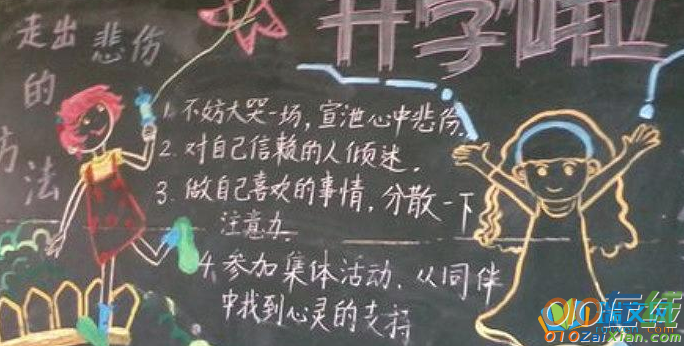 走出悲伤
的
方
法
开学啦
1. 不妨大哭一场，宣泄心中悲伤。
2. 对自己信赖的人倾述。
3. 做自己喜欢的事情，分散一下
注意力.
4. 参加集体活动. 从同伴
中找到心灵的支持
010ZaiXian.com